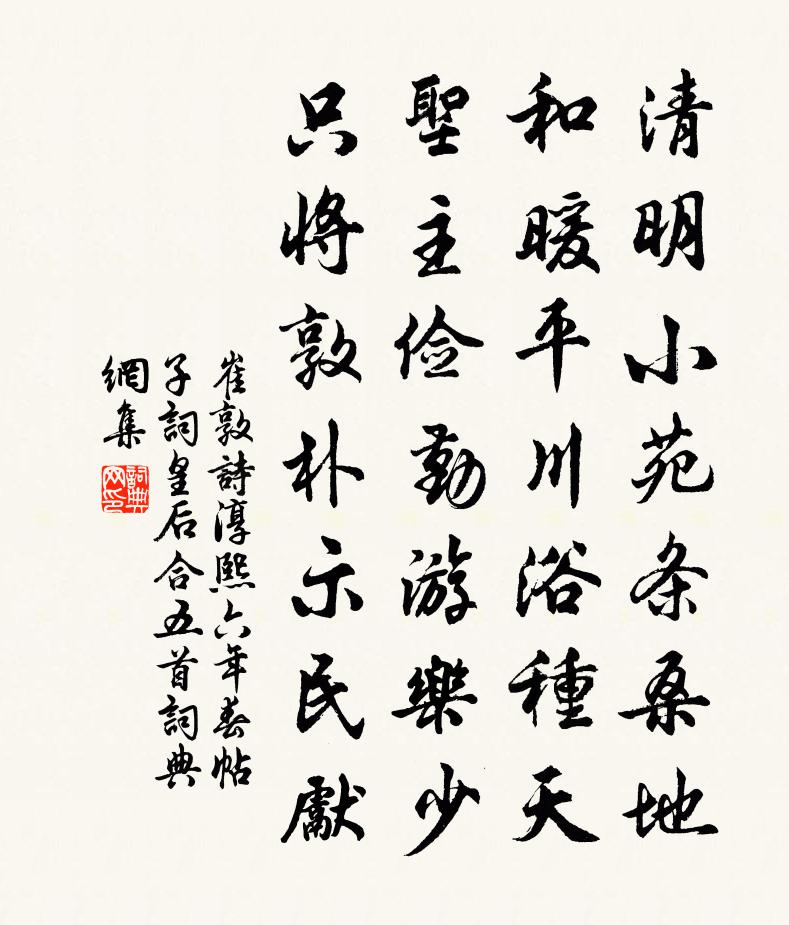 清明小苑条桑地
和暖平川浴種天
聖主儉勤游樂少
只將敦朴示民獻
崔敦詩淳熙六年春帖
子詞皇后合五首詞典
網集
詞典网印